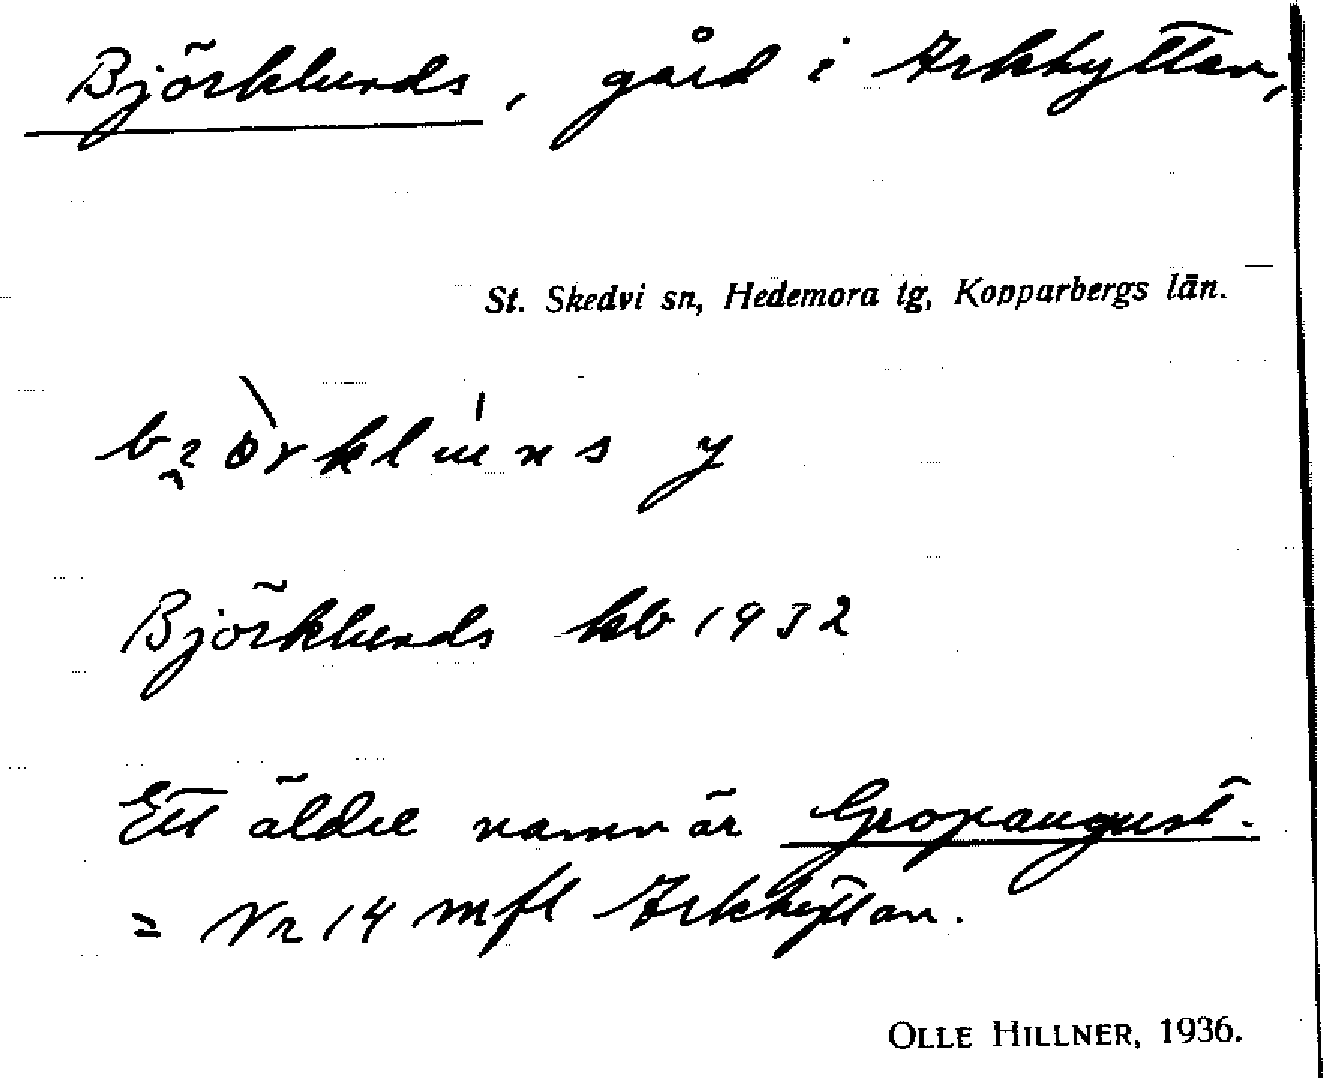 Björklunds, gård i Arkhyttan,
St. Skedvi sn, Hedemora tg, Kopparbergs län.
y
Björklunds kb 1932
Ett äldre namn är Gropaugust.
= Nr 14 mfl Arkhyttan.
OLLE HILLNER, 1936.